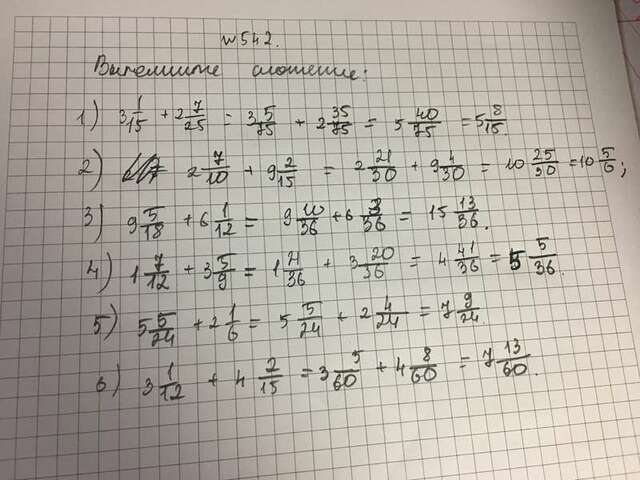 №542.
Выполните сложение:
1) 3 1/15 + 2 7/25 = 3 5/75 + 2 35/75 = 5 40/75 = 5 8/15.
2) 2 7/10 + 9 2/15 = 2 21/30 + 9 4/30 = 10 25/30 = 10 5/6;
3) 9 5/18 + 6 1/12 = 9 10/36 + 6 3/36 = 15 13/36.
4) 1 7/12 + 3 5/9 = 1 21/36 + 3 20/36 = 4 41/36 = 5 5/36.
5) 5 5/24 + 2 1/6 = 5 5/24 + 2 4/24 = 7 9/24.
6) 3 1/12 + 4 2/15 = 3 5/60 + 4 8/60 = 7 13/60.